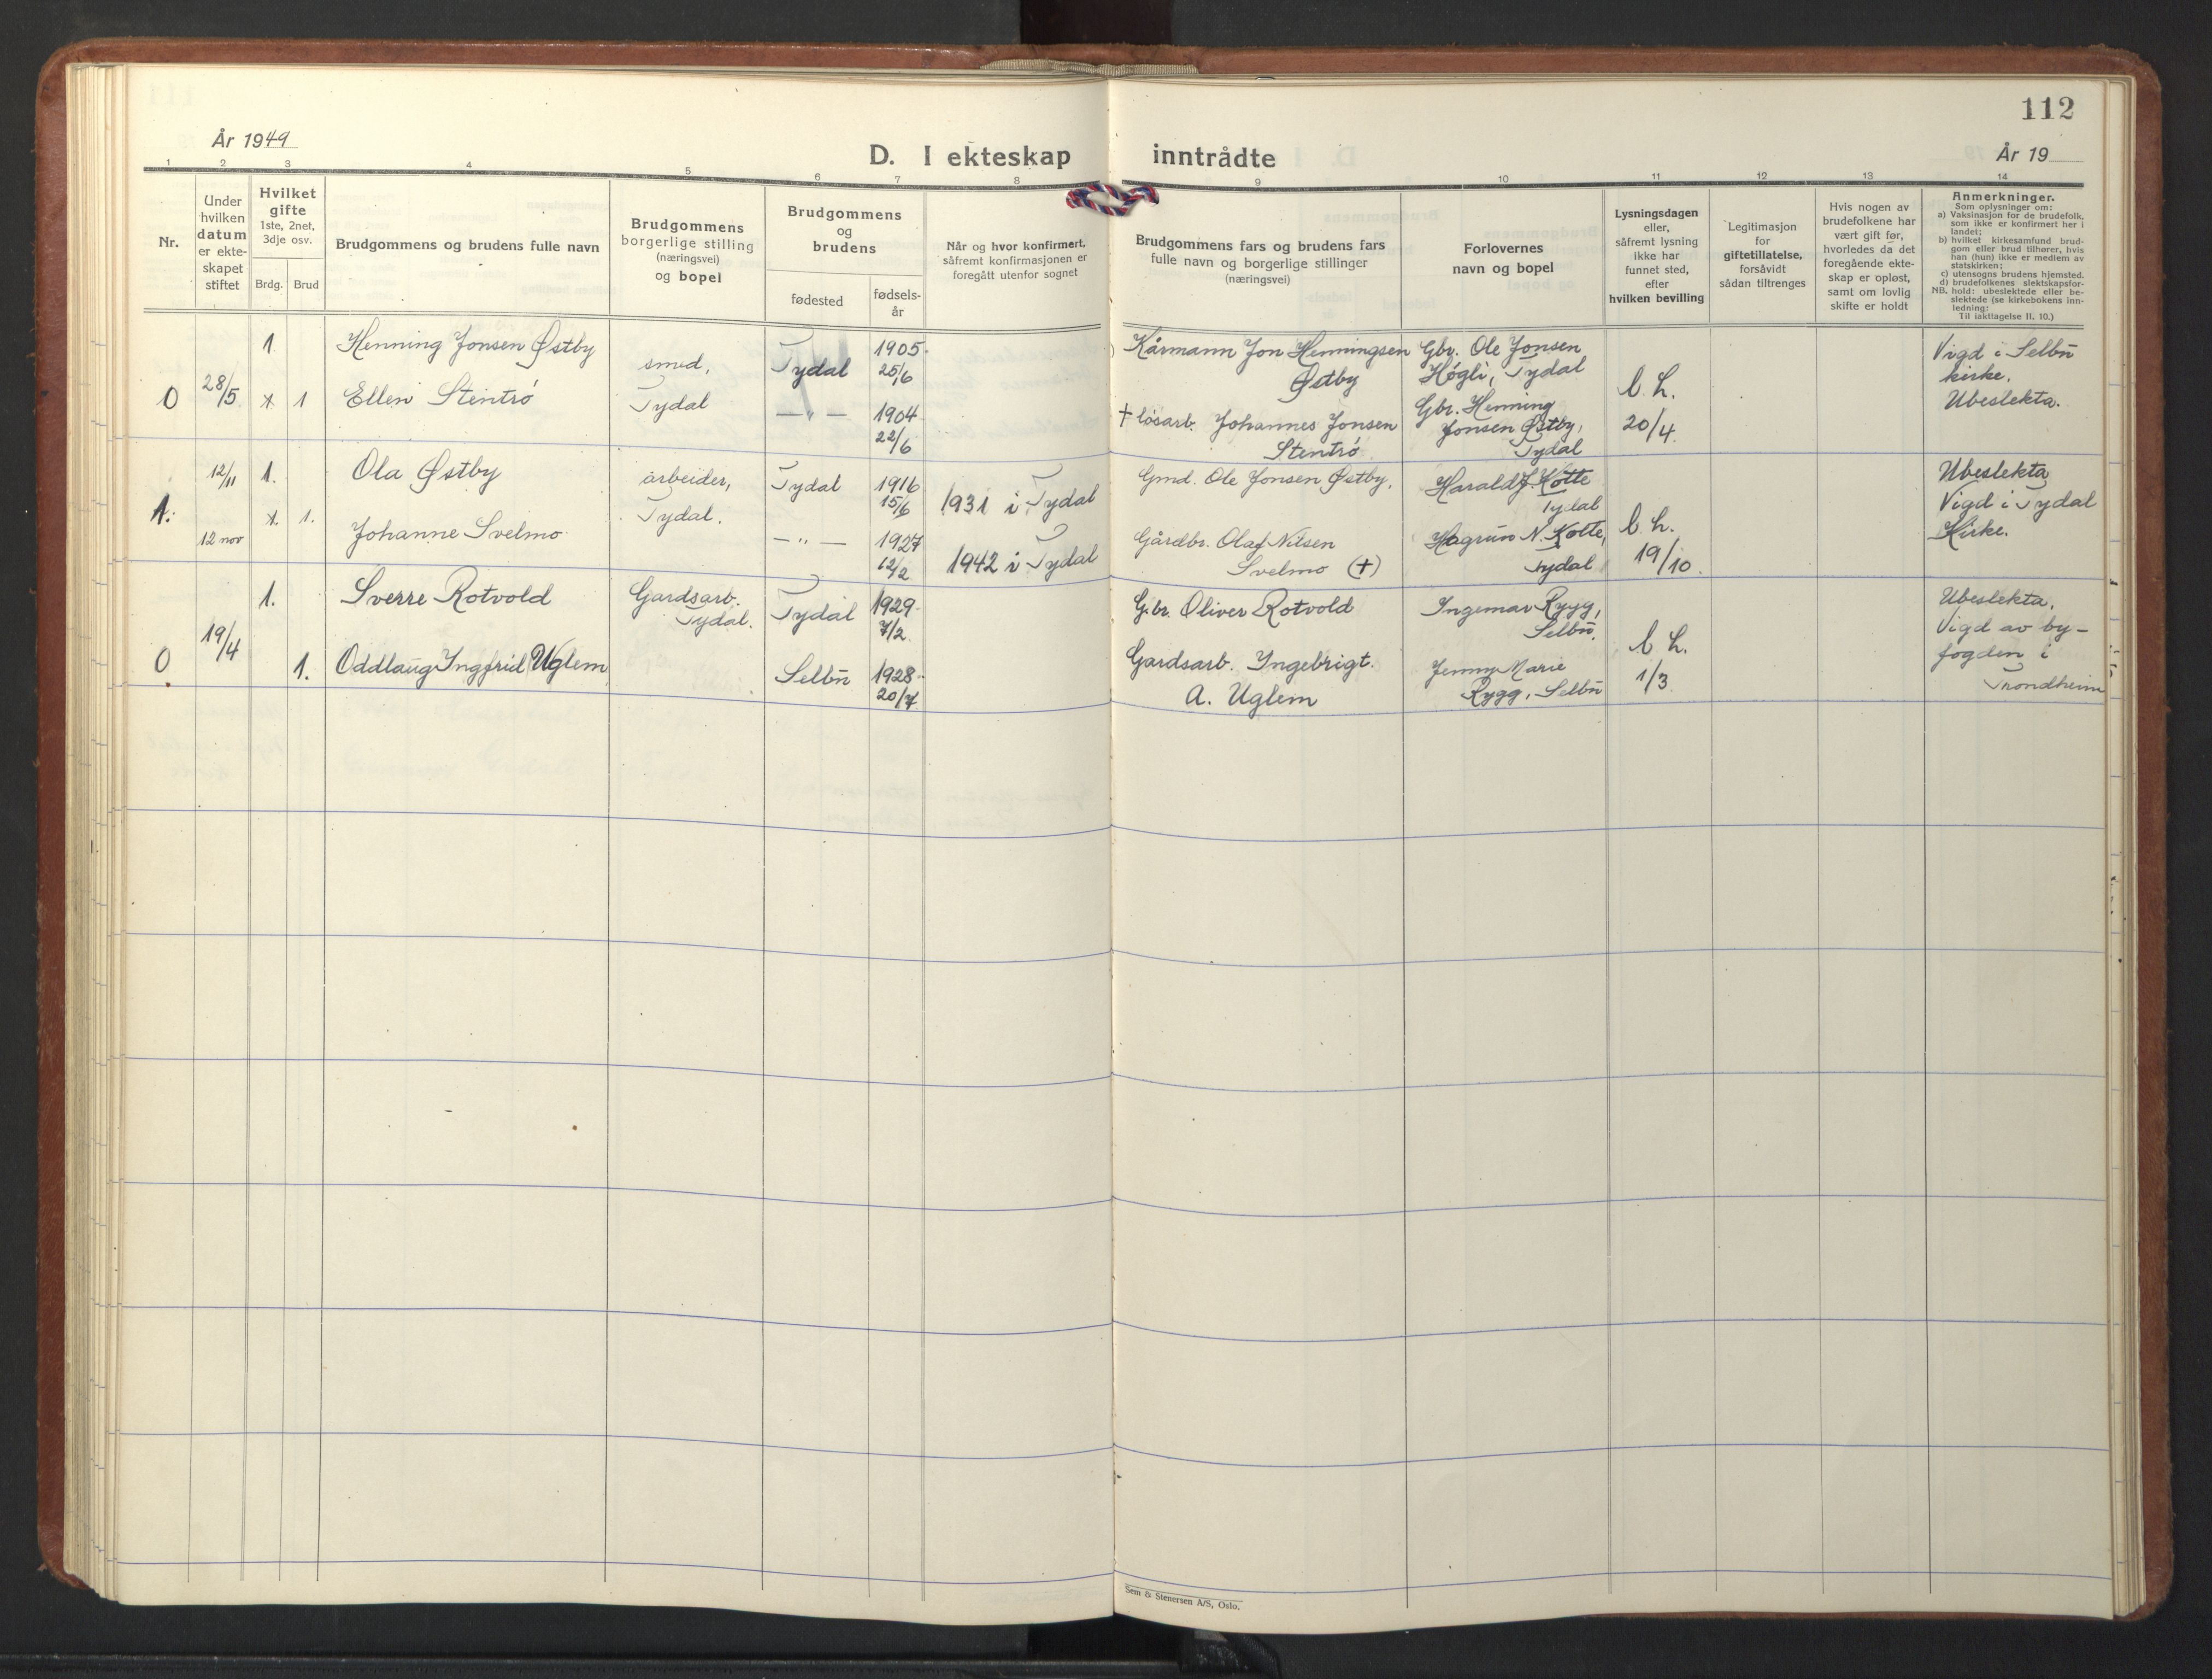 112
År 1949
D. I ekteskap inntrådte
År 19
1 2 3 4 5 6 7 8 9 10 11 12 13 14
Nr.
Under
hvilken
datum
er ekte-
skapet
stiftet
Hvilket
gifte
1ste, 2net,
3dje osv.
Brdg. Brud
Brudgommens og brudens fulle navn
Brudgommens
borgerlige stilling
(næringsvei)
og bopel
Brudgommens
og
brudens
fødested
fødsels-
år
Når og hvor konfirmert,
såfremt konfirmasjonen er
foregått utenfor sognet
Brudgommens fars og brudens fars
fulle navn og borgerlige stillinger
(næringsvei)
Forlovernes
navn og bopel
Lysningsdagen
eller,
såfremt lysning
ikke har
funnet sted,
efter
hvilken bevilling
Legitimasjon
for
giftetillatelse,
forsåvidt
sådan tiltrenges
Hvis nogen av
brudefolkene har
vært gift før,
hvorledes da det
foregående ekte-
skap er opløst,
samt om lovlig
skifte er holdt
Anmerkninger.
Som oplysninger om:
a) Vaksinasjon for de brudefolk,
som ikke er konfirmert her i
landet;
b) hvilket kirkesamfund brud-
gom eller brud tilhører, hvis
han (hun) ikke er medlem av
statskirken;
c) utensogns brudens hjemsted.
d) brudefolkenes slektskapsfor-
NB. hold: ubeslektede eller be-
slektede (se kirkebokens inn-
ledning:
Til iakttagelse II, 10.)
0
28/5
1
1
Henning Jonsen Østby
Ellen Stentrø
smed,
Tydal
Tydal
— " —
1905
25/6
1904
22/6
Kårmann Jon Henningsen
Østby
† løsarb. Johannes Jonsen
Stentrø
Gbr. Ole Jonsen
Høgli, Tydal
Gbr. Henning
Jonsen Østby,
Tydal
b. h.
20/4.
Vigd i Selbu
kirke.
Ubeslekta.
1.
12/11
12 nov
1.
1.
Ola Østby
Johanne Svelmo
arbeider,
Tydal.
Tydal
— " —
1916
15/6
1927
12/2
1931 i Tydal
1942 i Tydal
Gmd. Ole Jonsen Østby.
Gårdbr. Olaf Nilsen
Svelmo (†)
Harald J. Kotte
Tydal
N. Kotte,
Tydal
b. h.
19/10.
Ubeslekta
Vigd i Tydal
Kirke.
0
19/4
1.
1.
Sverre Rotvold
Oddlaug Ingfrid Uglem
Gardsarb.
Tydal.
Tydal
Selbu
1929
7/2
1928
20/7
Gbr. Oliver Rotvold
Gardsarb. Ingebrigt.
A. Uglem
Ingemar Rygg,
Selbu.
Jenny Marie
Rygg, Selbu
b. h.
1/3
Ubeslekta.
Vigd av by-
fogden i
Trondheim
Sem & Stenersen A/S, Oslo.